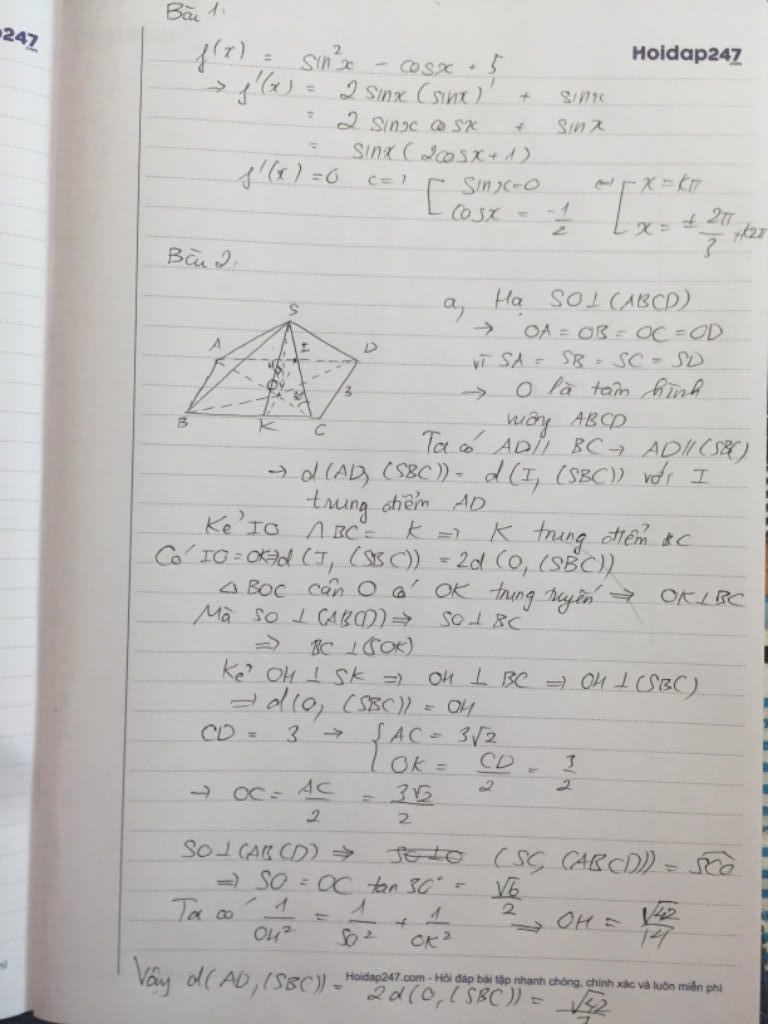 Bài 1:
247
.com
Hoidap247
.com
f(x) = sin²x - cosx + 5
→ f'(x) = 2 sinx (sinx)' + sinx
= 2 sinx cosx + sinx
= sinx (2cosx + 1)
f'(x) = 0 <=> [ sinx = 0 <=> [ x = kπ
cosx = -1/2 x = ± 2π/3 + k2π
Bài 2.
S
A I D
O 30 3
B K C
a, Hạ SO ⊥ (ABCD)
→ OA = OB = OC = OD
vì SA = SB = SC = SD
→ O là tâm hình
vuông ABCD
Ta có AD // BC → AD // (SBC)
→ d(AD, (SBC)) = d(I, (SBC)) với I
trung điểm AD
Kẻ IO ∩ BC = K => K trung điểm BC
Có IO = OK => d(I, (SBC)) = 2d(O, (SBC))
△ BOC cân O có OK trung tuyến => OK ⊥ BC
Mà SO ⊥ (ABCD) => SO ⊥ BC
=> BC ⊥ (SOK)
Kẻ OH ⊥ SK => OH ⊥ BC => OH ⊥ (SBC)
=> d(O, (SBC)) = OH
CD = 3 → { AC = 3√2
OK = CD/2 = 3/2
→ OC = AC/2 = 3√2/2
SO ⊥ (ABCD) => (SC, (ABCD)) = SCO
=> SO = OC tan 30° = √6/2
Ta có 1/OH² = 1/SO² + 1/OK² => OH = √42/14
Hoidap247.com - Hỏi đáp bài tập nhanh chóng, chính xác và luôn miễn phí
Vậy d(AD, (SBC)) = 2d(O, (SBC)) = √42/7